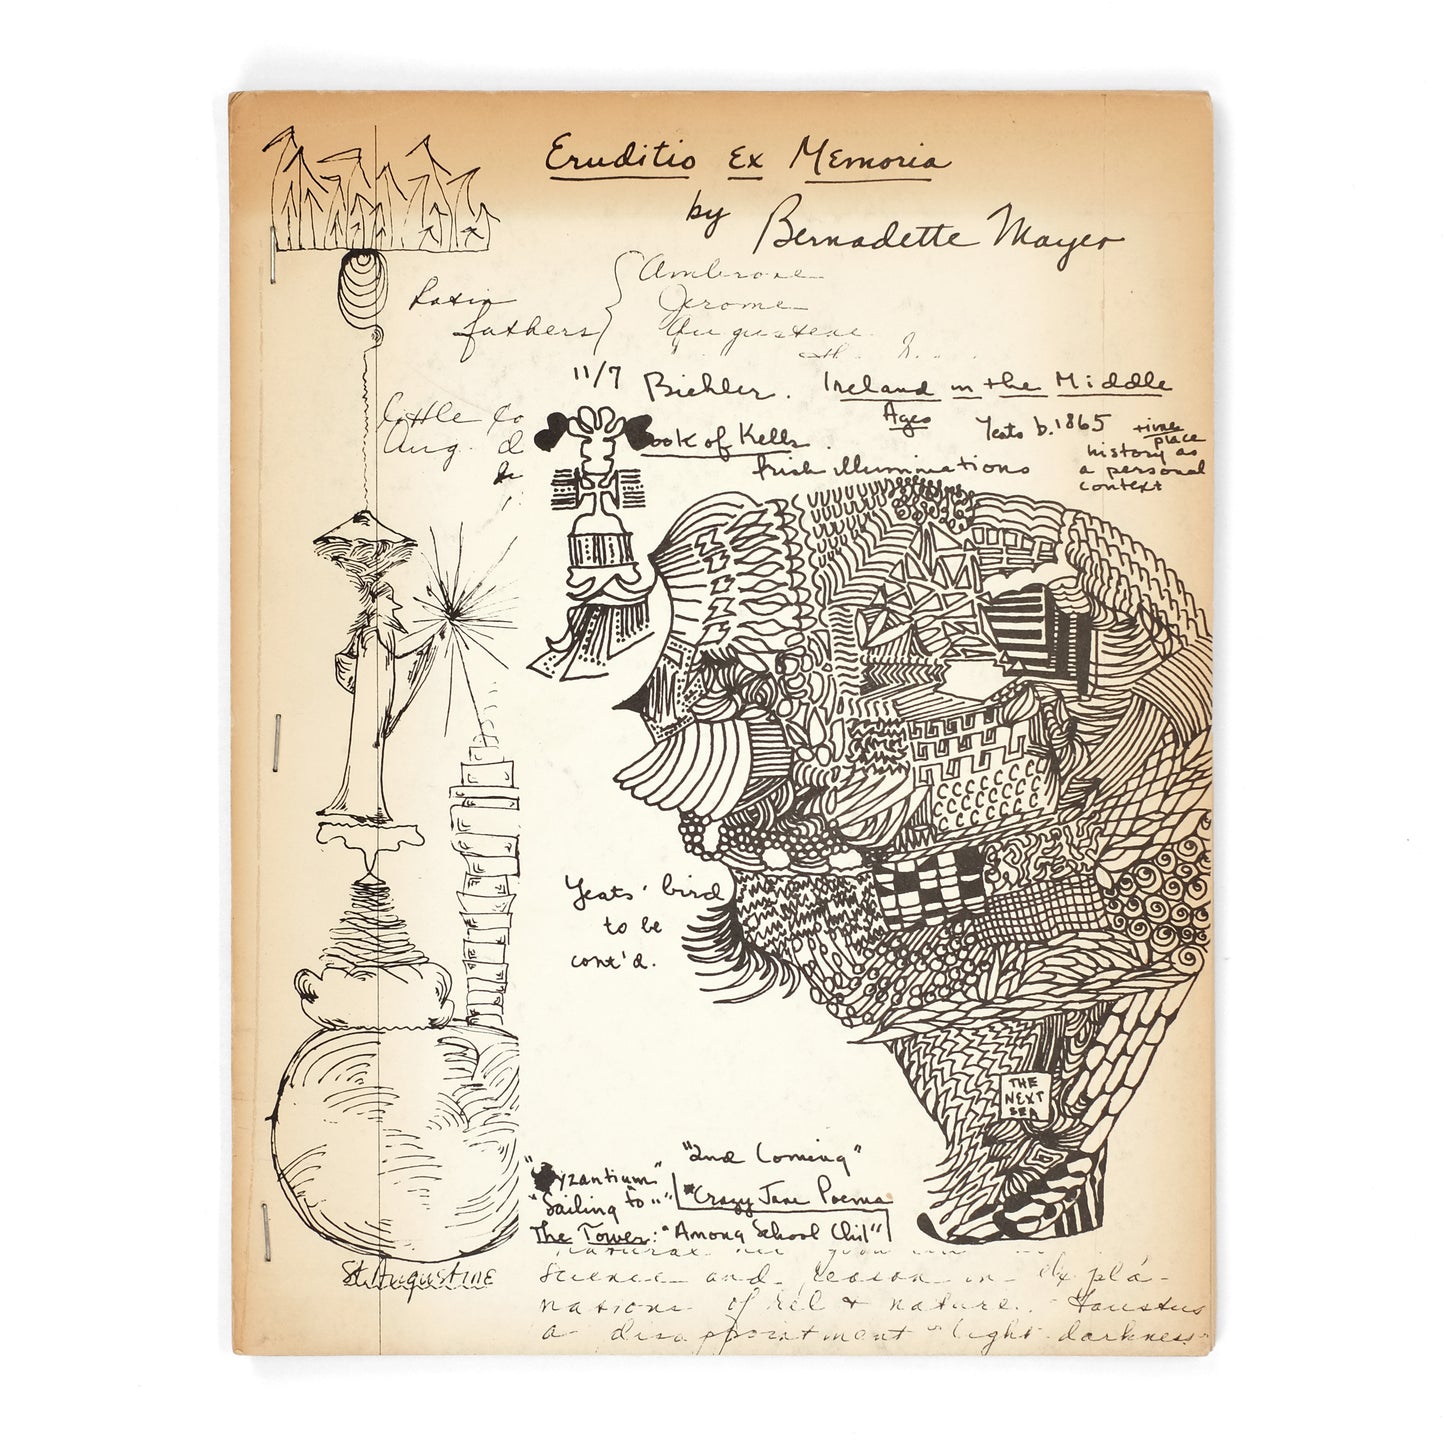 Eruditio Ex Memoria
by Bernadette Mayer
Latin fathers { Ambrose
Jerome
Augustine
11/7 Biehler. Ireland in the Middle
Ages
Yeats b. 1865
time
place
history as
a personal
context
Book of Kells.
Irish illuminations
little co
Aug. d
Yeats' bird
to be
cont'd.
THE
NEXT
ERA
"2nd Coming"
"Byzantium"
"Sailing to"" "Crazy Jane Poems
The Tower: "Among School Chil"
St. Augustine
science and reason in expla-
nations of rel + nature. Faustus
a disappointment "light-darkness